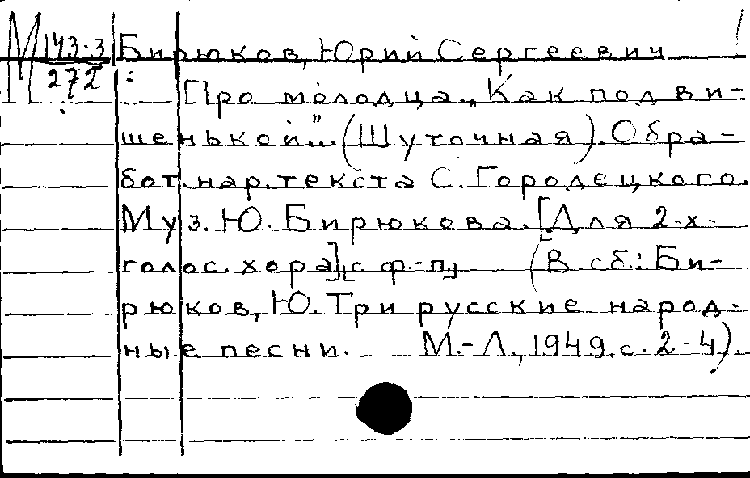 М 143-3 Бирюков, Юрий Сергеевич
272 : Про молодца „Как под ви-
шенькой"... (Шуточная). Обра-
бот. нар. текста С. Городецкого.
Муз. Ю. Бирюкова. [Для 2-х
голос. хора], [с ф-п] (В сб.: Би-
рюков, Ю. Три русские народ-
ные песни. М.-Л., 1949, с. 2-4).